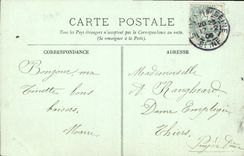 CARTE POSTALE
Tous les Pays étrangers n'acceptent pas la Correspondance au recto.
(Se renseigner à la Poste).
CORRESPONDANCE
ADRESSE
Bonjour ma
Tinette bons
baisers
Marie
Mademoiselle
A Rangheard
Dame Employée
Thiers
Puy de Dôme